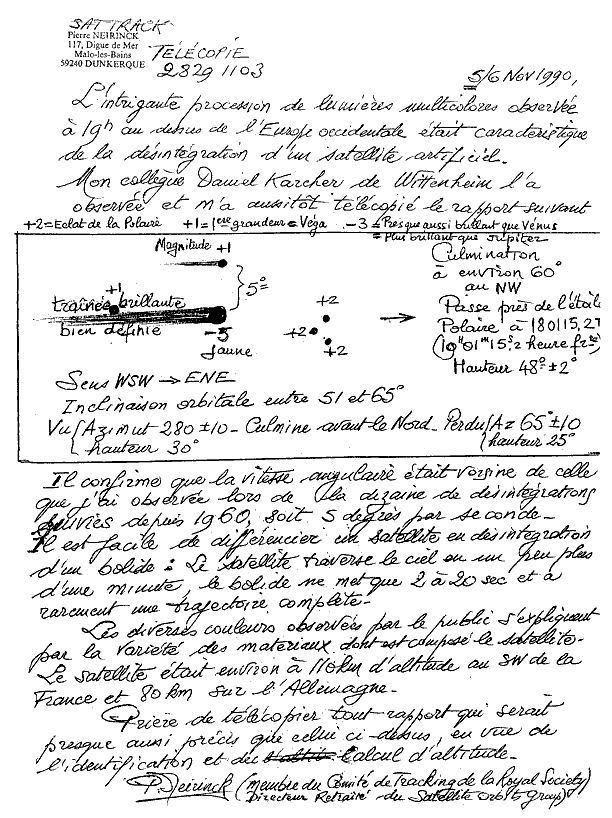 SATTRACK
Pierre NEIRINCK
117, Digue de Mer
Malo-les-Bains
59240 DUNKERQUE
TÉLÉCOPIE
2829 1103
5/6 Nov 1990,
L'intrigante procession de lumières multicolores observée
à 19h au dessus de l'Europe occidentale était caractéristique
de la désintégration d'un satellite artificiel.
Mon collègue Daniel Karcher de Wittenheim l'a
observée et m'a aussitôt télécopié le rapport suivant
+2=Eclat de la Polaire +1=1ere grandeur=Véga -3=Presque aussi brillant que Vénus
=Plus brillant que Jupiter
Magnitude +1
5°
+1
traînée brillante
bien définie
-3
Jaune
+2
+2
+2
Culmination
à environ 60°
au NW
Passe près de l'étoile
Polaire à 180115,27
(19H01m15s,2 heure frse)
Hauteur 48°±2°
Sens WSW → ENE
Inclinaison orbitale entre 51 et 65°
Vu { Azimut 280±10 - Culmine avant le Nord - Perdu { Az 65°±10
hauteur 30° hauteur 25°
Il confirme que la vitesse angulaire était voisine de celle
que j'ai observée lors de la dizaine de désintégrations
suivies depuis 1960, soit 5 degrés par seconde.
Il est facile de différencier un satellite en désintégration
d'un bolide : Le satellite traverse le ciel en un peu plus
d'une minute, le bolide ne met que 2 à 20 sec et a
rarement une trajectoire complète.
Les diverses couleurs observées par le public s'expliquent
par la variété des materiaux dont est composé le satellite.
Le satellite était environ à 110km d'altitude au SW de la
France et 80 km sur l'Allemagne.
Prière de télécopier tout rapport qui serait
presque aussi précis que celui ci-dessus, en vue de
l'identification et du calcul d'altitude.
P. Neirinck (membre du Comité de Tracking de la Royal Society)
Directeur Retraité du Satellite Orbits Group)